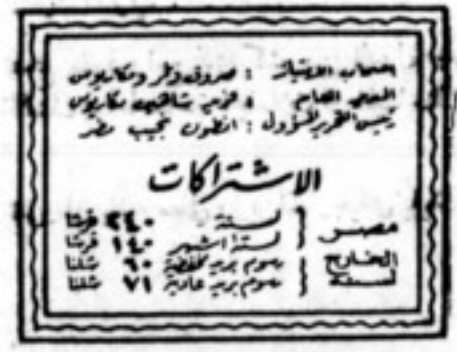 اصحاب الامتياز : صروف ونمر ومكاريوس
المدير العام : فوزير شاهين مكاريوس
رئيس التحرير المسؤول : انطون نجيب مطر
الاشتراكات
مصر { لسنة ٢٤٠ قرشا
لستة اشهر ١٤٠ قرشا
الخارج لسنة { رسوم بريد مخفضة ٦٠ شلنا
رسوم بريد عادية ٧١ شلنا